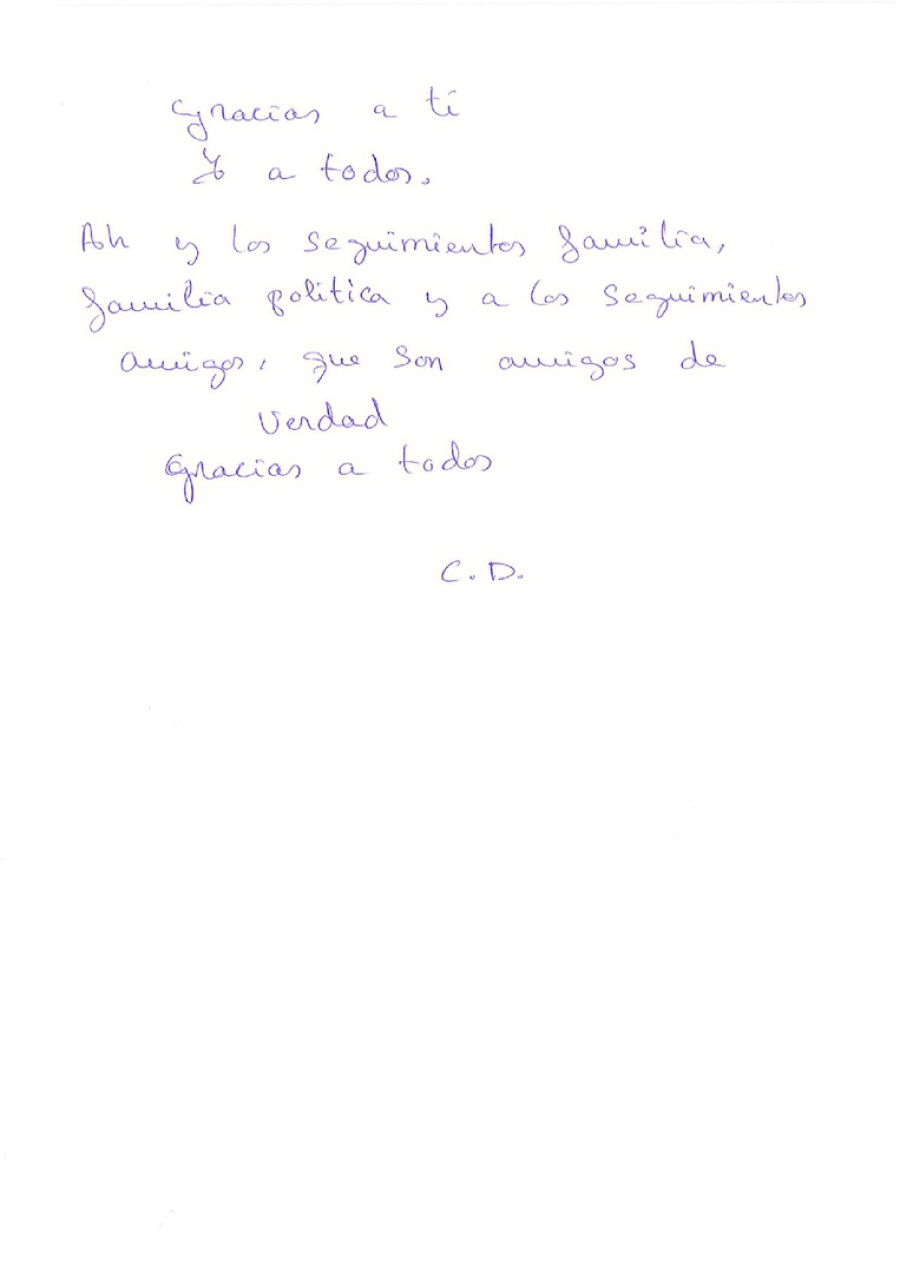 Gracias a ti
Y a todos.
Ah y los seguimientos familia,
familia politica y a los seguimientos
amigos, que son amigos de
verdad
Gracias a todos
C.D.